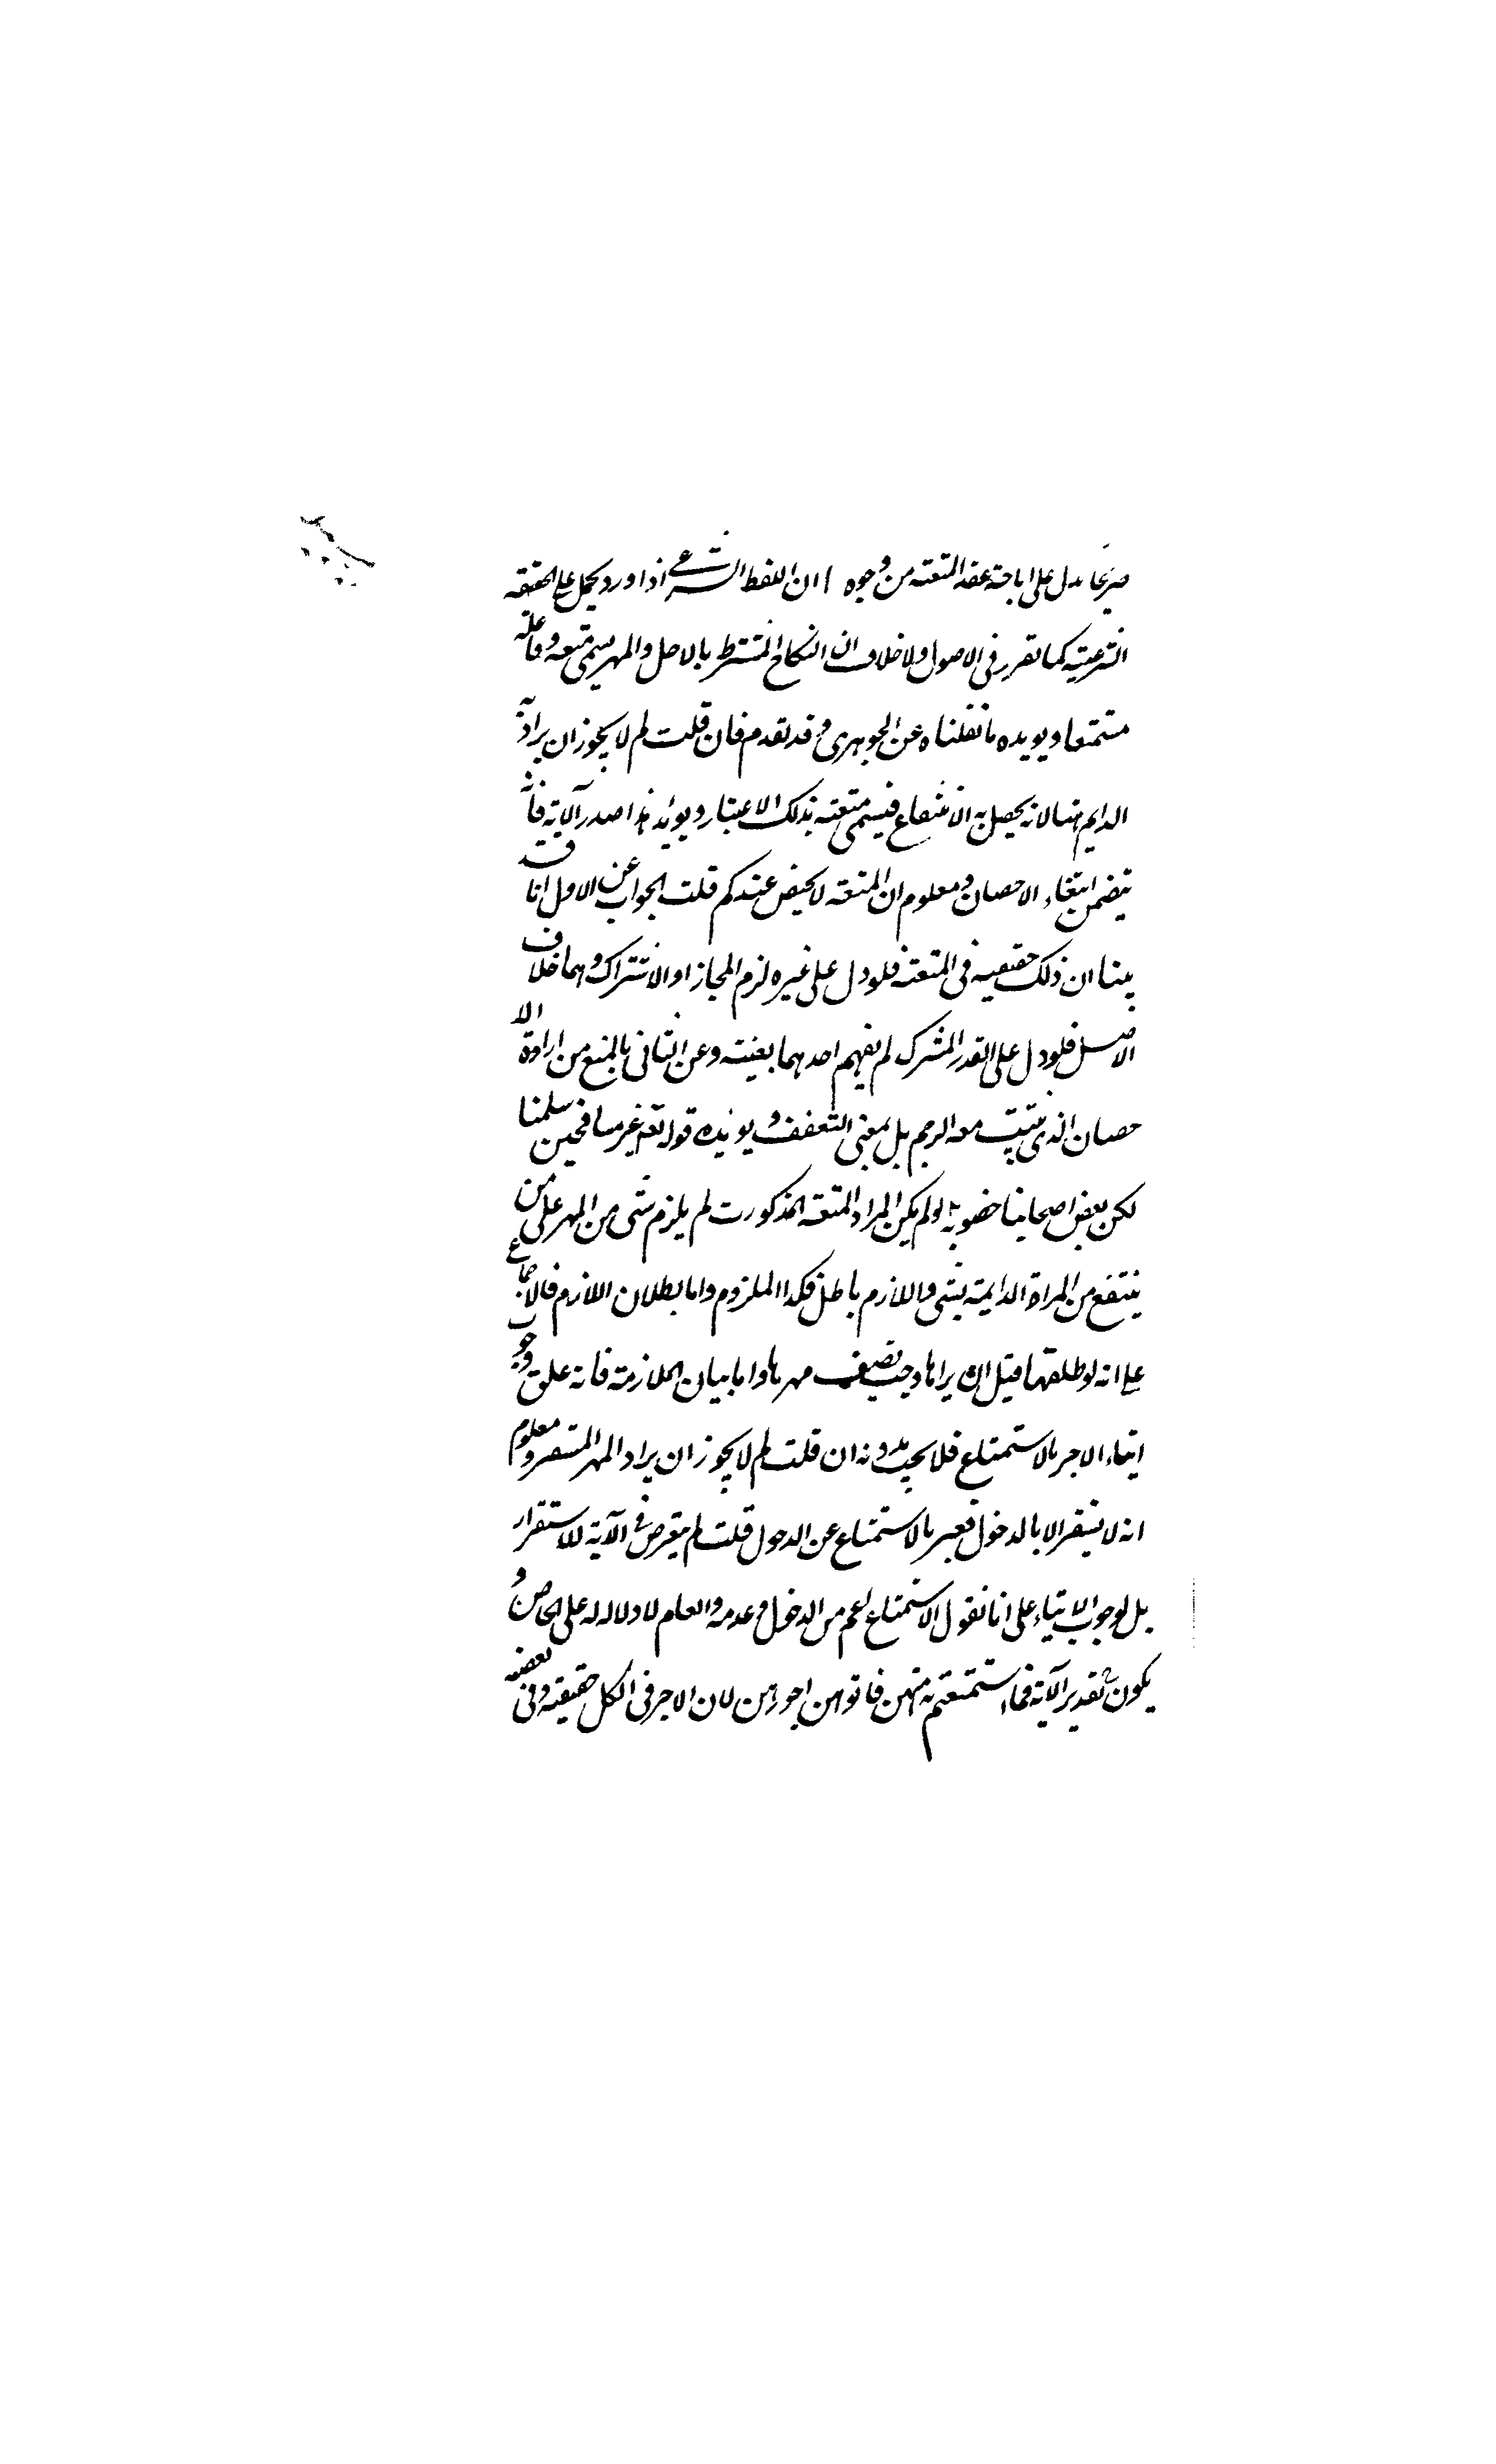 صريحا يدل على اباحة عقد المتعة من وجوه ا ان اللفظ الشرعى اذا ورد يحمل على الحقيقة
الشرعية كما تقرر فى الاصول ولا خلاف ان النكاح المشترط بالاجل والمهر يسمى متعة وفاعله
مستمتعا ويويده ما نقلناه عن الجوهرى وقد تقدم فان قلت لم لا يجوز ان يراد به
الدايم هنا لانه يحصل به الانتفاع فيسمى متعة بذلك الاعتبار ويوئد هذا صدر الآية فانه
يتضمن ابتغاء الاحصان ومعلوم ان المتعة لا تحصن عندكم قلت الجواب عن الاول انا قد
بينا ان ذلك حقيقية فى المتعة فلو دل على غيره لزم المجاز او الاشتراك وهما خلاف
الاصل فلو دل على القدر المشترك لم يفهم احدهما بعينه وعن الثانى بالمنع من ارادة الا
حصان الذى يثبت معه الرجم بل بمعنى التعفف ويوئده قوله تعه غير مسافحين سلمنا
لكن بعض اصحابنا خصوبه لو لم يكن المراد المتعة المذكورت لم يلزم شى من المهر على من
ينتفع من المراة الدايمة بشى واللازم باطل فكذا الملزوم واما بطلان اللازم فالاجماع
على انه لو طلقها قبل ان يراها وجب نصيف مهرها واما بيان الملازمة فانه علق وجوب
ايتاء الاجر بالاستمتاع فلا يجب بدونه ان قلت لم لا يجوز ان يراد المهر المستقر ومعلوم
انه لا يستقر الا بالدخول فعبر بالاستمتاع عن الدحول قلت لم يتعرض فى الآية للاستقرار
بل لوجوب الايتياء على انا نقول الاستمتاع اعم من الدخول وعدمه والعام لا دلاله له على الخاص و
يكون تقدير الآية فما استمتعتم به منهن فاتوهن اجورهن لان الاجر فى الكل حقيقة وفى بعضه